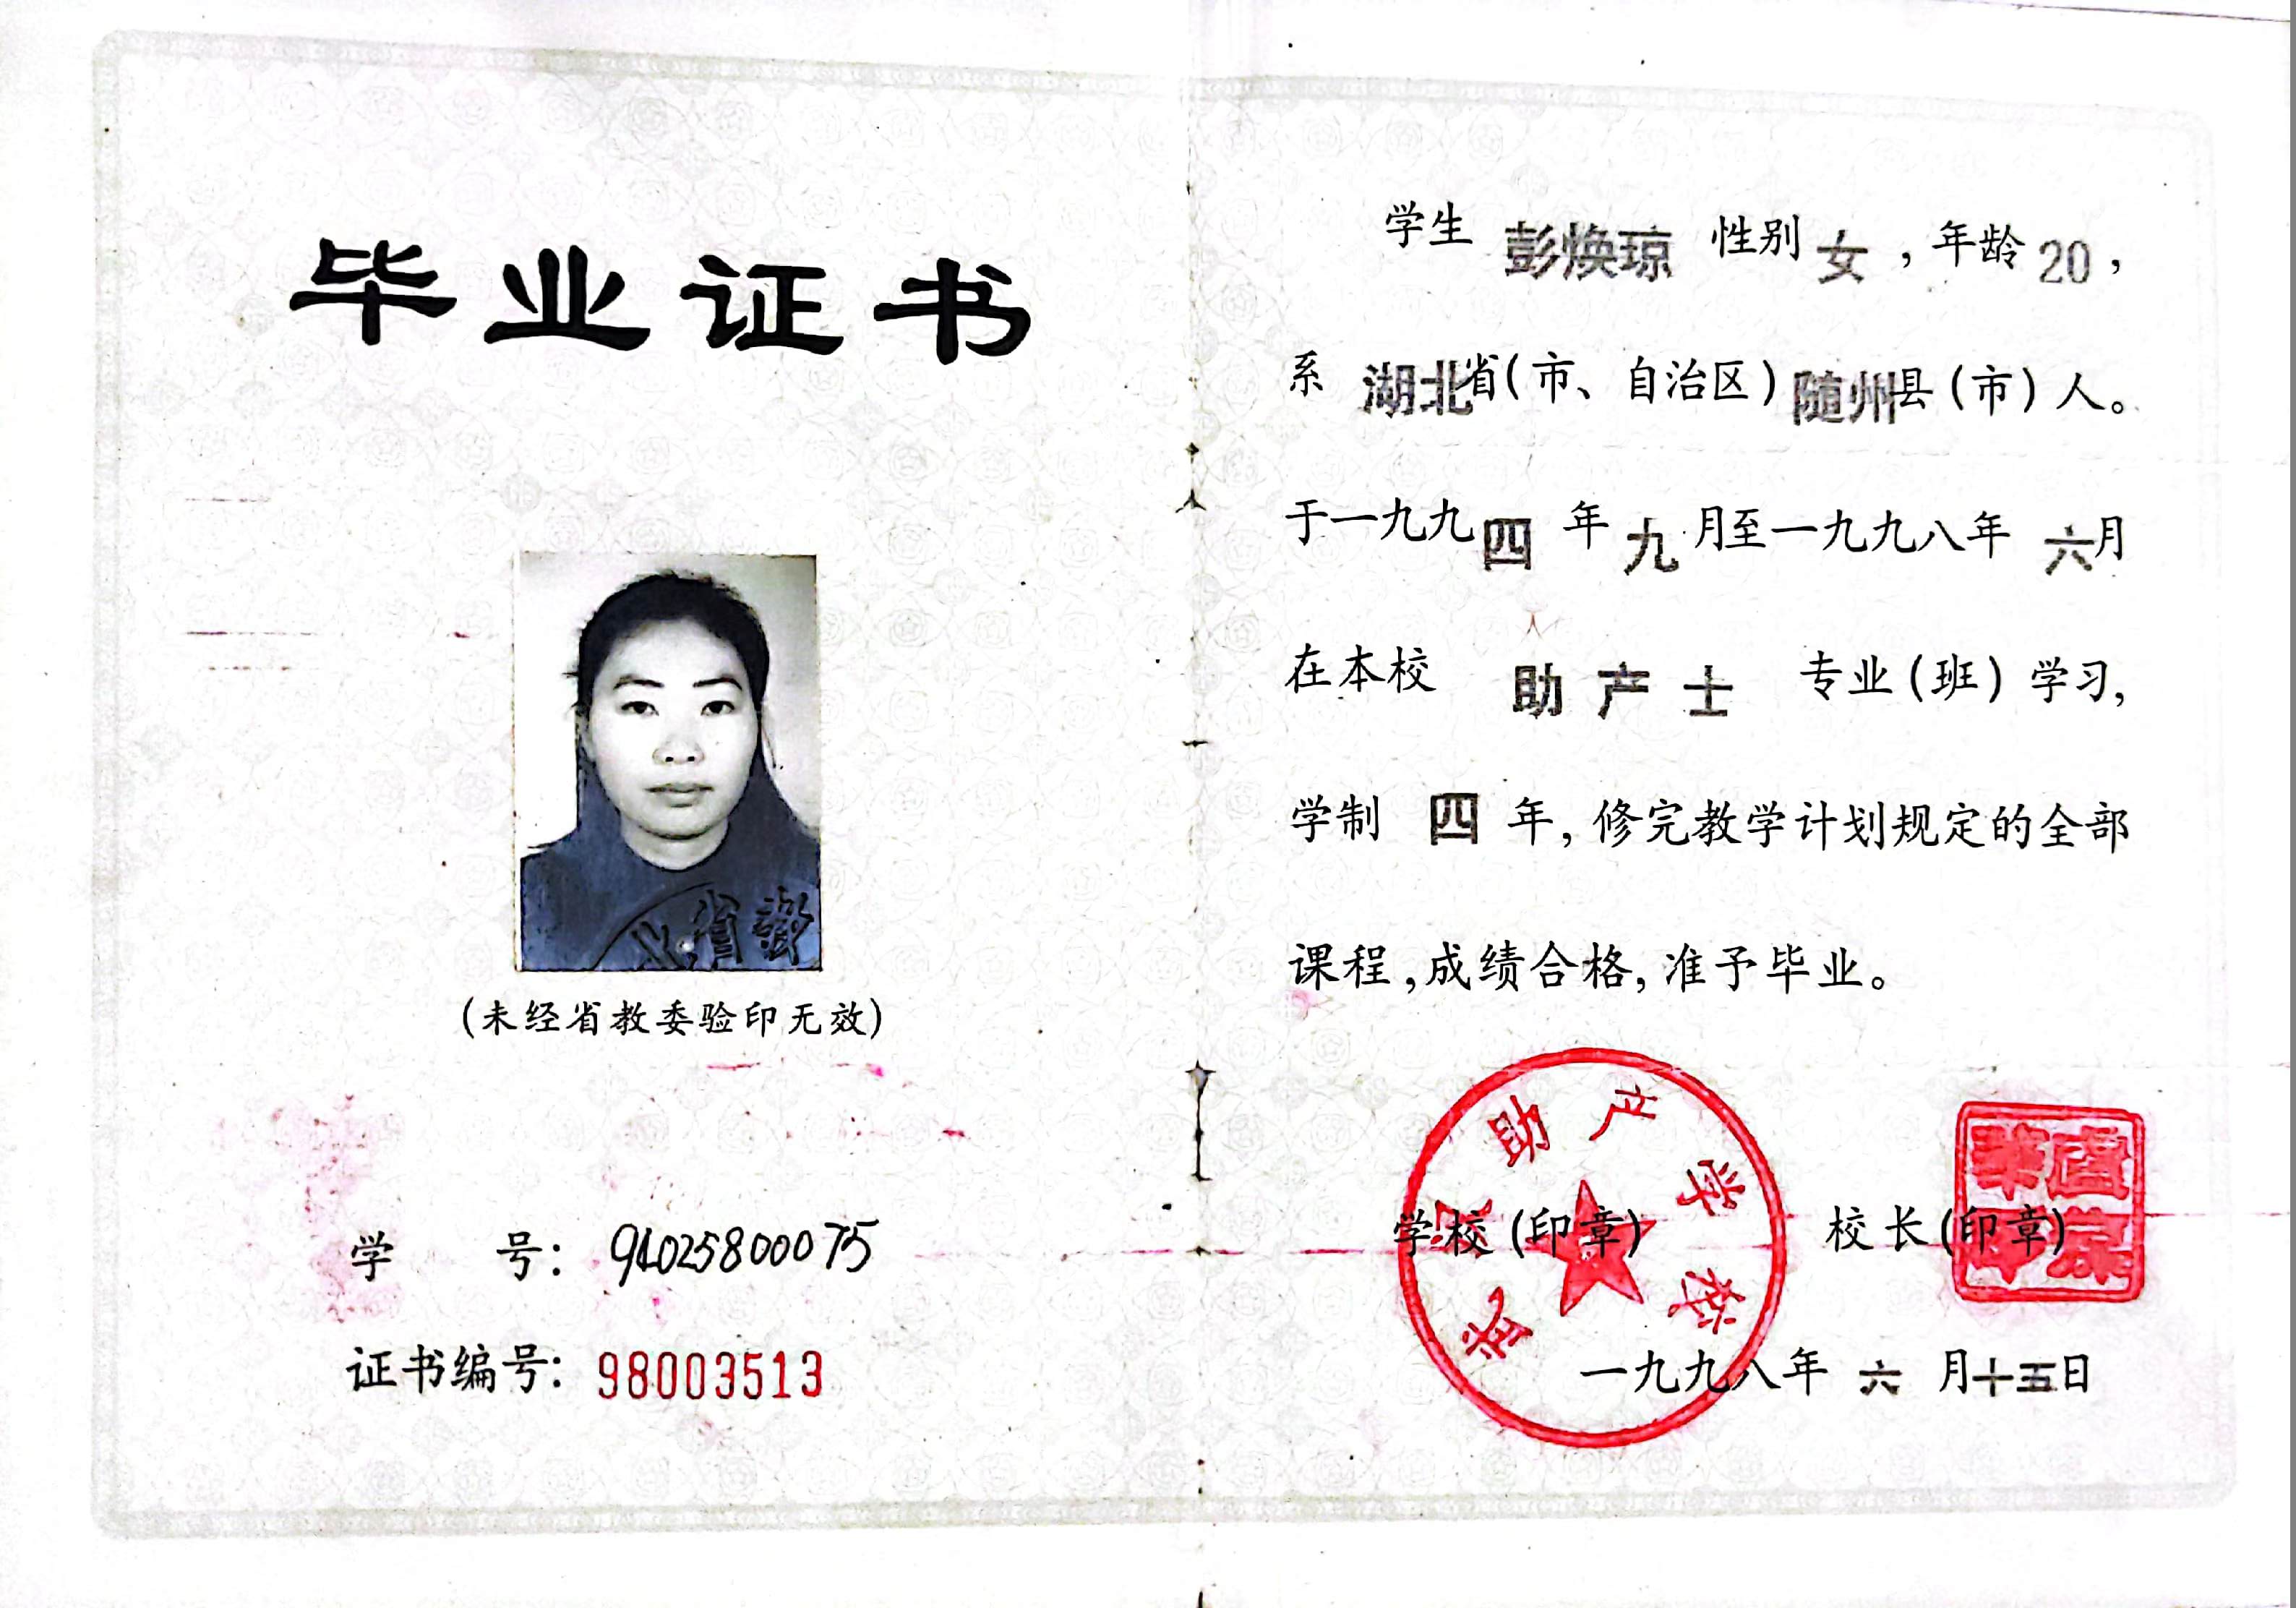 毕业证书
(未经省教委验印无效)
学 号: 94025800075
证书编号: 98003513
学生 彭焕琼 性别 女 , 年龄 20 ,
系 湖北省(市、自治区) 随州县(市)人。
于一九九四年九月至一九九八年 六月
在本校 助产士 专业(班)学习,
学制 四 年, 修完教学计划规定的全部
课程,成绩合格,准予毕业。
学校(印章) 校长(印章)
一九九八年 六 月十五日